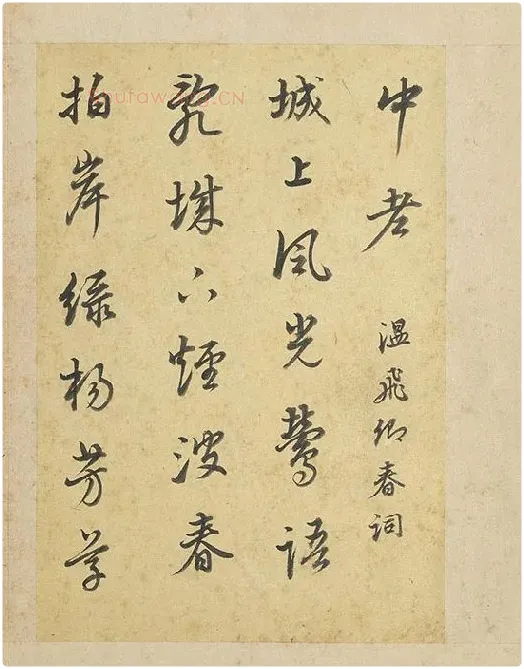 中考 温飛卿春詞
城上風光鶯語
亂城下煙波春
拍岸綠楊芳草